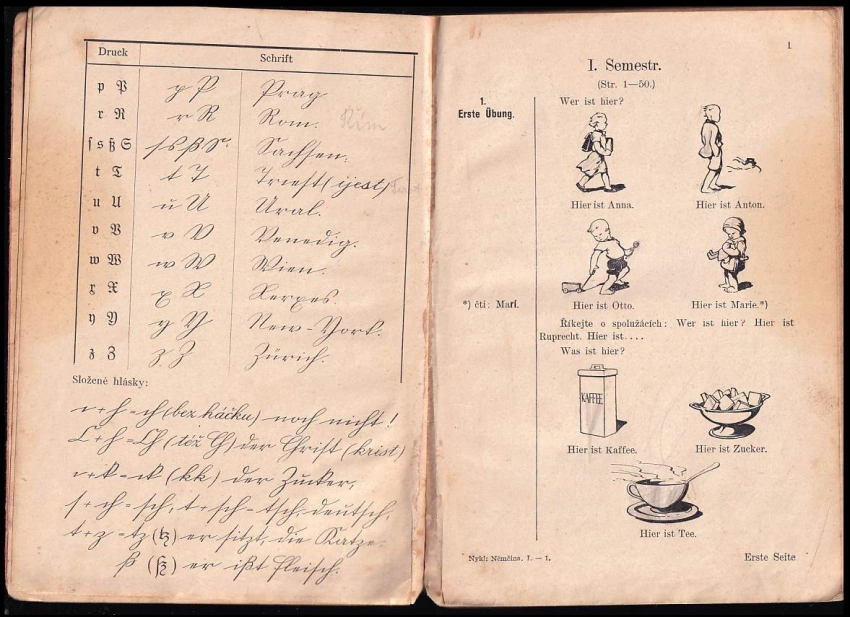 Druck Schrift
p P p P Prag
r R r R Rom. Řím
ſ s ß S ſ s ß S Sachsen.
t T t T Triest (ijest)
u U u U Ural.
v V v V Venedig.
w W w W Wien.
x X x X Xerxes.
y Y y Y New-York.
z Z z Z Zürich.
Složené hlásky:
c+h=ch (bez háčku) noch nicht!
C+h=Ch (též Ch) der Christ (krist)
c+k=ck (kk) der Zucker,
s+ch=sch, t+sch=tsch, deutsch,
t+z=tz (tz) er sitzt, die Katze.
ß (ß) er ißt Fleisch.
1
I. Semestr.
(Str. 1—50.)
1.
Erste Übung.
Wer ist hier?
Hier ist Anna. Hier ist Anton.
Hier ist Otto. Hier ist Marie.*)
*) čti: Marí.
Říkejte o spolužácích: Wer ist hier? Hier ist
Ruprecht. Hier ist....
Was ist hier?
KAFFEE
Hier ist Kaffee. Hier ist Zucker.
Hier ist Tee.
Nykl: Němčina. I. — 1. Erste Seite